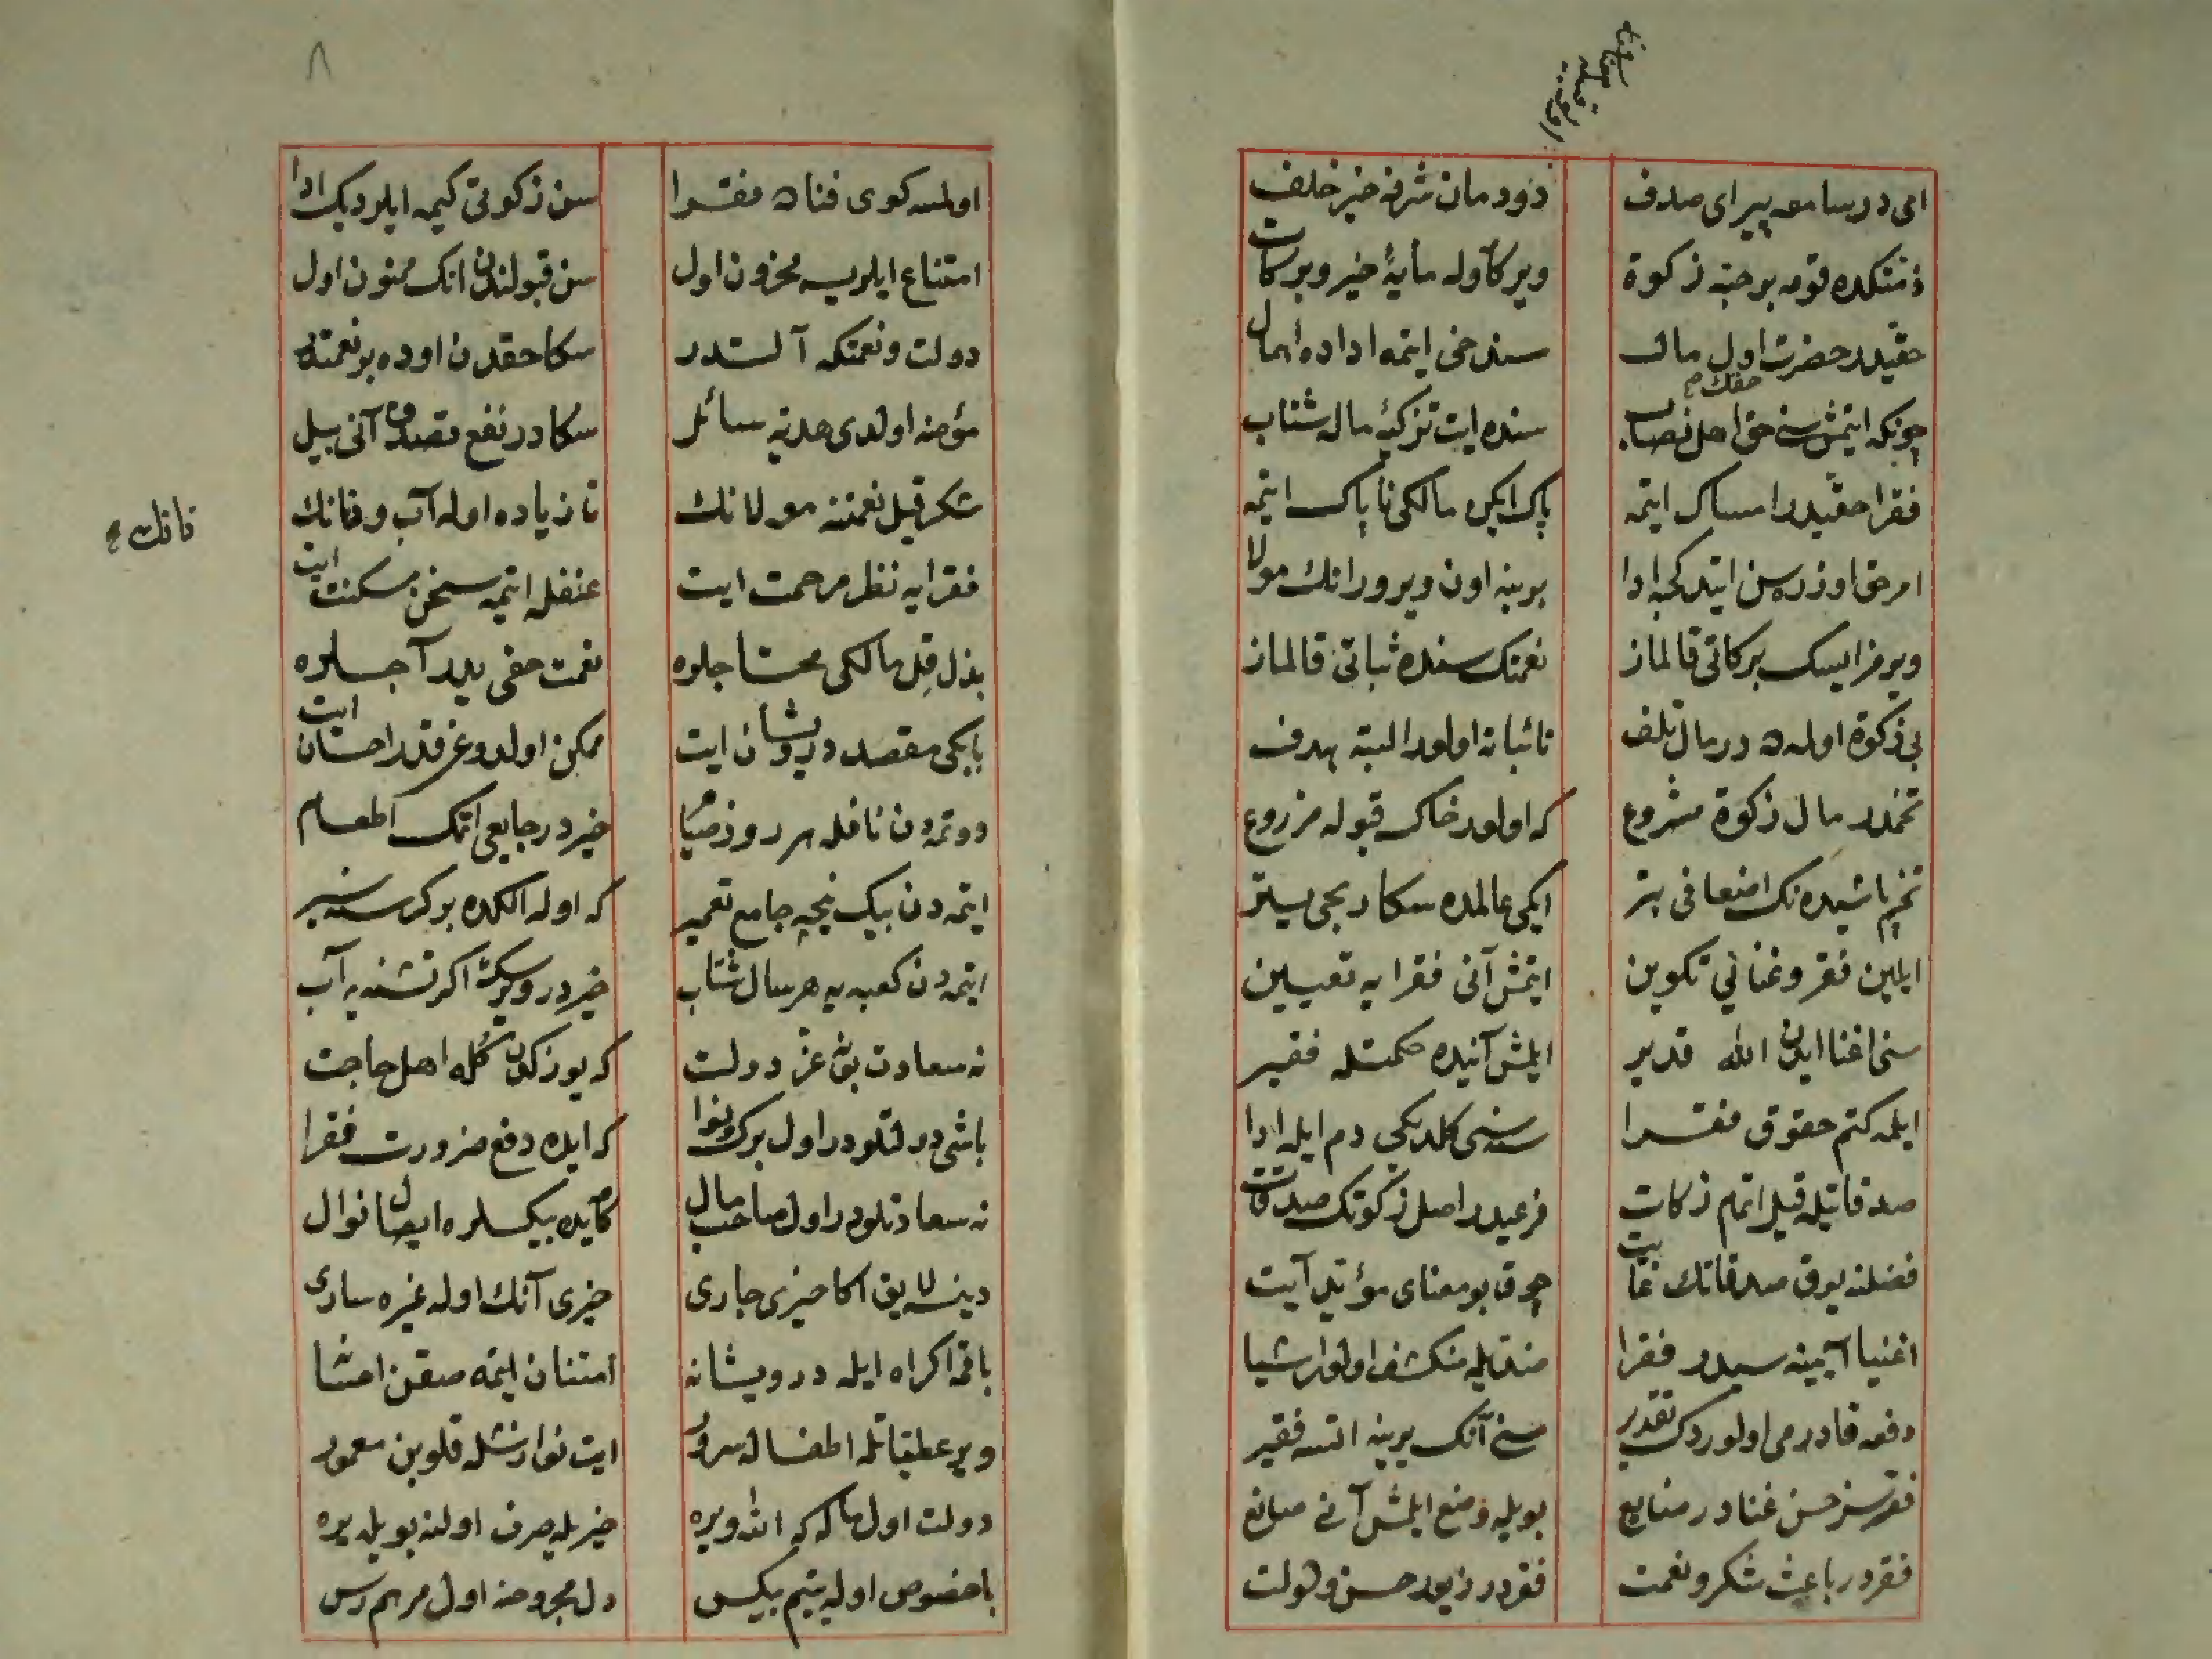 ای در سامعه پیرای صدف
دودمان شرفه خیر خلف
ذمتکده قومه بر حبه زکوة
ویر که اوله مایهٔ خیر وبرکات
حقیدر حضرت اول مالک
سندخی ایتمه اداده اهمال
چونکه ایتمش سنی حق اهل نصاب
حقک
سنده ایت تزکیهٔ ماله شتاب
فقرا حقیدر امساک ایتمه
پاک ایکن مالکی ناپاک ایتمه
امر حق اوزره سن ایتدکجه ادا
برینه اون ویرور انک مولا
ویرمز ایسک برکاتی قالماز
نعمتک سنده ثباتی قالماز
بی زکوة اولسه در مال تلف
نائباته اولور البته هدف
تخمدر مال زکوة مشروع
که اولور خاک قبوله مزروع
تخم پاشیده نک اضعافی بتر
ایکی عالمده سکا ریحی یتر
ایلین فقر وغنایی تکوین
ایتمش آنی فقرایه تعیین
سنی اغنا ایدن الله قدیر
ایلمش آنیده حکمتله فقیر
ایلمه کتم حقوق فقرا
سنه سی کلدیکی دم ایله ادا
صدقاتیله قیل اتمام زکات
فرعیدر اصل زکوتک صدقات
فضلنه یوق صدقاتک غایت
چوق بو معنای مؤید آیت
اغنیا آیینه سیدر فقرا
ضدیله منکشف اولور اشیا
دفعه قادر می اولوردک تقدیر
سنی آنک یرینه اتسه فقیر
فقرسز حسن غنا در ضایع
بویله وضع ایلمش آنی صانع
فقردر باعث شکر ونعمت
فقردر زیور حسن دولت
۸
اولمسه کوی فناده فقرا
سن زکوتی کیمه ایلردک ادا
امتناع ایلریسه محزون اول
سن قبولندن انک ممنون اول
دولت ونعمتکه آلتدر
سکا حقدن او ده بر نعمتدر
مؤمنه اولدی هدیه سائل
سکادر نفع تصدق آنی بیل
شکر قیل نعمتنه مولانک
تا زیاده اوله آب ونانک
نانک
فقرایه نظر مرحمت ایت
عنفله ایتمه سخن مسکنت ایت
بذل قیل مالکی محتاجلره
نعمت حقی یدر آجلره
بابکی مقصد درویشان ایت
ممکن اولدوغی قدر احسان ایت
دوتمدن نافله هر روز صیام
خیردر جایعی اتمک اطعام
ایتمه دن بیک نیجه جامع تعمیر
که اوله الکده بر کرسنه سیر
ایتمه دن کعبه یه هر سال شتاب
خیردر ویرسک اکر تشنه یه آب
نه سعادت بو نه عز دولت
که یوزکدن کوله اهل حاجت
باشی دولتلودر اول برک ونوا
که ایده دفع ضرورت فقرا
نه سعادتلودر اول صاحب مال
که ایده بیکسلره ایصال نوال
دینسه لایق اکا خیری جاری
خیری آنک اوله غیره ساری
باقمه اکراه ایله درویشانه
امتنان ایتمه صقن احسانه
ویر عطیاتله اطفاله سرور
ایت نوازشله قلوبن معمور
دولت اول مال که الله ویره
خیریله صرف اولنه بویله یره
باخصوص اوله یتیم بیکس
دل مجروحنه اول مرهم رس